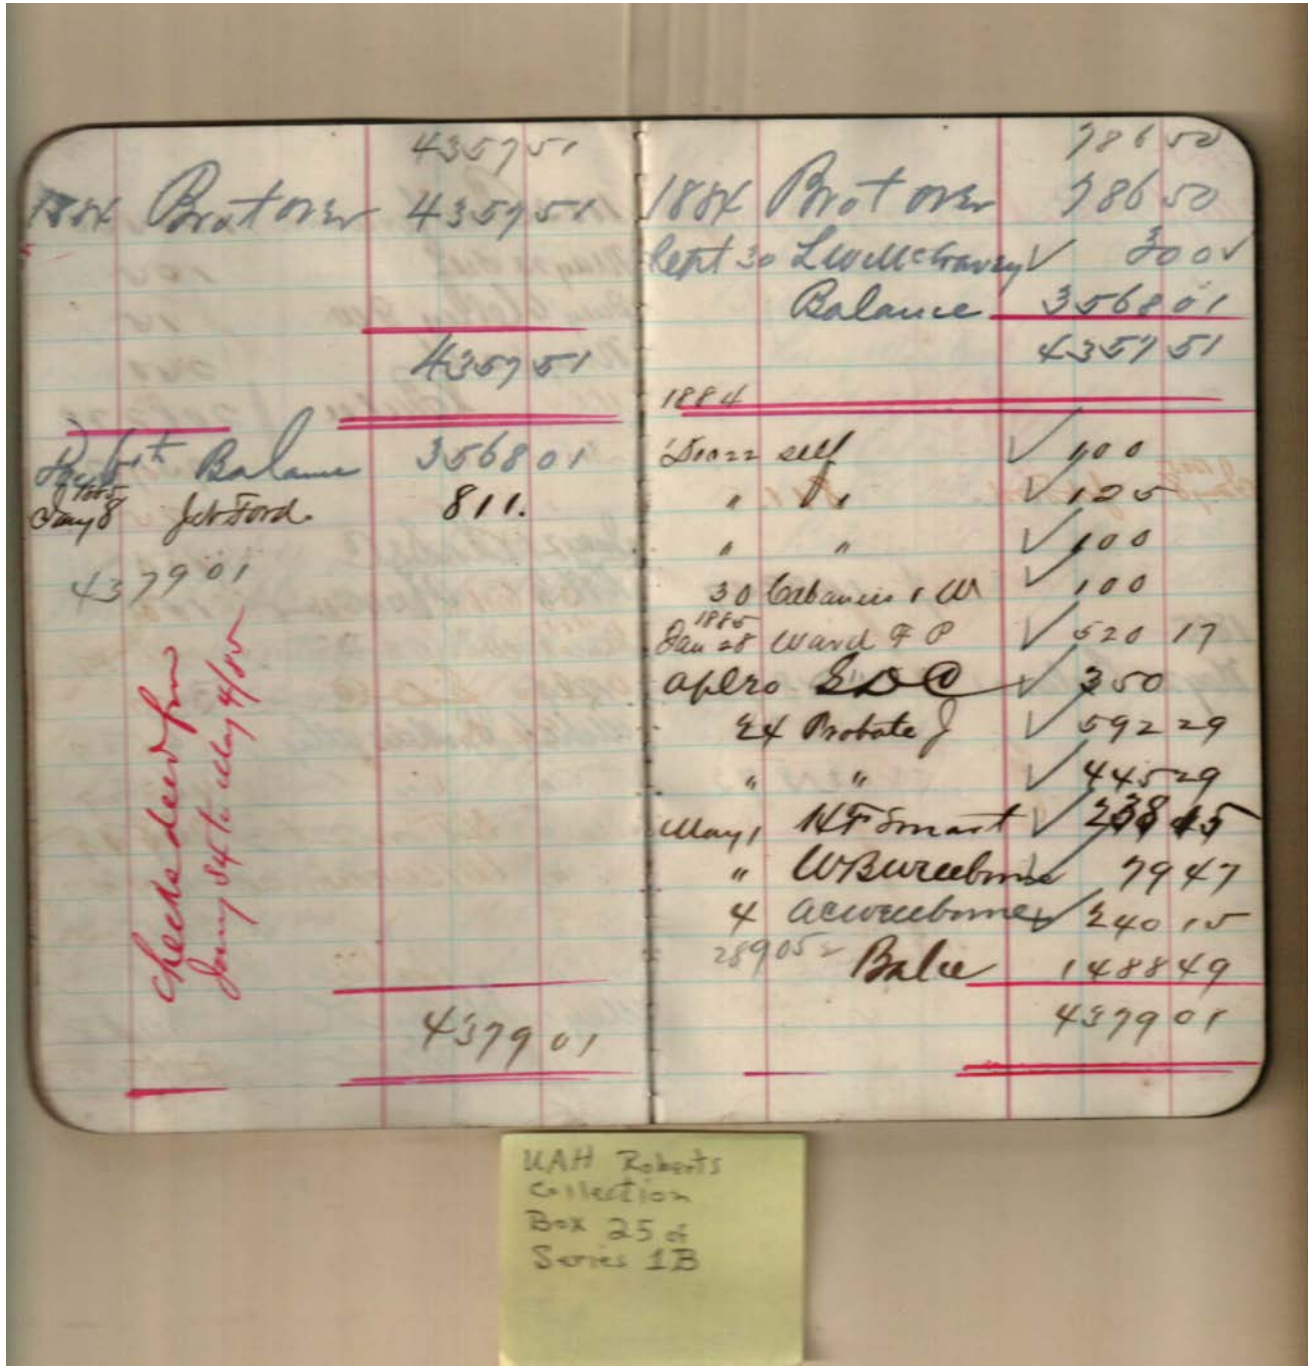 435751
1884 Brot over 435751
435751
Balance 356801
1885
Jany 8 Jet Ford 811.
437901
Checks deliv from
Jany 84 to May 4/85
437901
78650
1884 Brot over 78650
Sept 30 L W McCravey ✓ 300 ✓
Balance 356801
435751
1884
22 self ✓ 100
" " ✓ 125
" " ✓ 100
30 Cabaniss & W ✓ 100
1885
Jan 28 Ward F P ✓ 520 17
Apl 20 S D C ✓ 350
24 Probate J ✓ 592 29
" " ✓ 445 29
May 1 H F Smart ✓ 238 15
" W B Wellborne ✓ 79 47
4 A C Wellborne ✓ 240 15
289052 Balce 1488 49
437901
UAH Roberts
Collection
Box 25 of
Series 1B